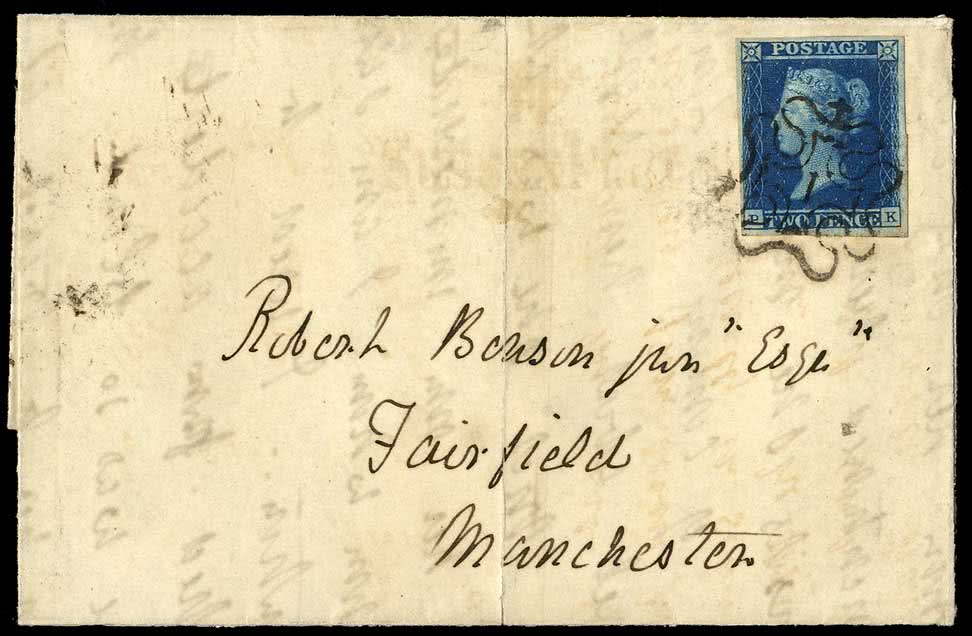 POSTAGE
P TWO PENCE K
Robert Benson jun "Esqr"
Fairfield
Manchester